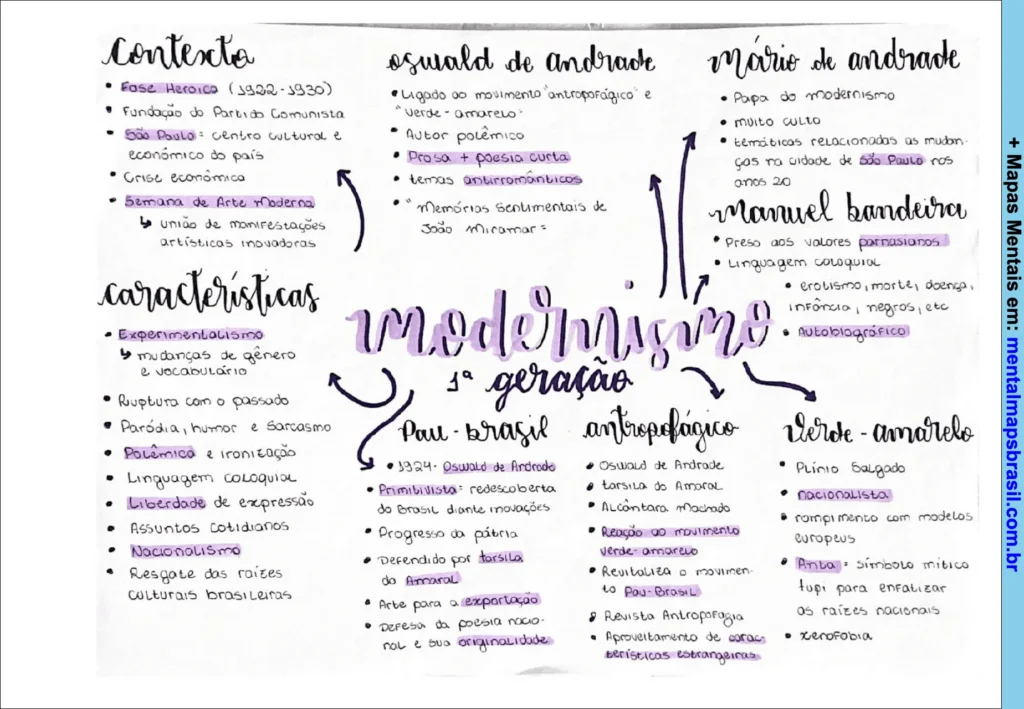 contexto
• Fase Heroica (1922-1930)
• Fundação do Partido Comunista
• São Paulo = centro cultural e
econômico do país
• Crise econômica
• Semana de Arte Moderna
↳ união de manifestações
artísticas inovadoras
características
• Experimentalismo
↳ mudanças de gênero
e vocabulário
• Ruptura com o passado
• Paródia, humor e sarcasmo
• Polêmica e ironização
• Linguagem coloquial
• Liberdade de expressão
• Assuntos cotidianos
• Nacionalismo
• Resgate das raízes
culturais brasileiras
oswald de andrade
• Ligado ao movimento "antropofágico" e
"verde-amarelo"
• Autor polêmico
• Prosa + poesia curta
• temas antirromânticos
• "Memórias Sentimentais de
João Miramar"
mário de andrade
• Papa do modernismo
• muito culto
• temáticas relacionadas as mudan-
ças na cidade de São Paulo nos
anos 20
manuel bandeira
• Preso aos valores parnasianos
• Linguagem coloquial
• erotismo, morte, doença,
infância, negros, etc
• Autobiográfico
modernismo
1ª geração
Pau-brasil
• 1924- Oswald de Andrade
• Primitivista= redescoberta
do Brasil diante inovações
• Progresso da pátria
• Defendido por tarsila
do Amaral
• Arte para a exportação
• Defesa da poesia nacio-
nal e sua originalidade
antropofágico
• Oswald de Andrade
• tarsila do Amaral
• Alcântara machado
• Reação ao movimento
verde-amarelo
• Revitaliza o movimen-
to Pau-Brasil
• Revista Antropofagia
• Aproveitamento de carac-
terísticas estrangeiras
verde-amarelo
• Plínio Salgado
• nacionalista
• rompimento com modelos
europeus
• Anta = símbolo mítico
tupi para enfatizar
as raízes nacionais
• xenofobia
+ Mapas Mentais em: mentalmapsbrasil.com.br